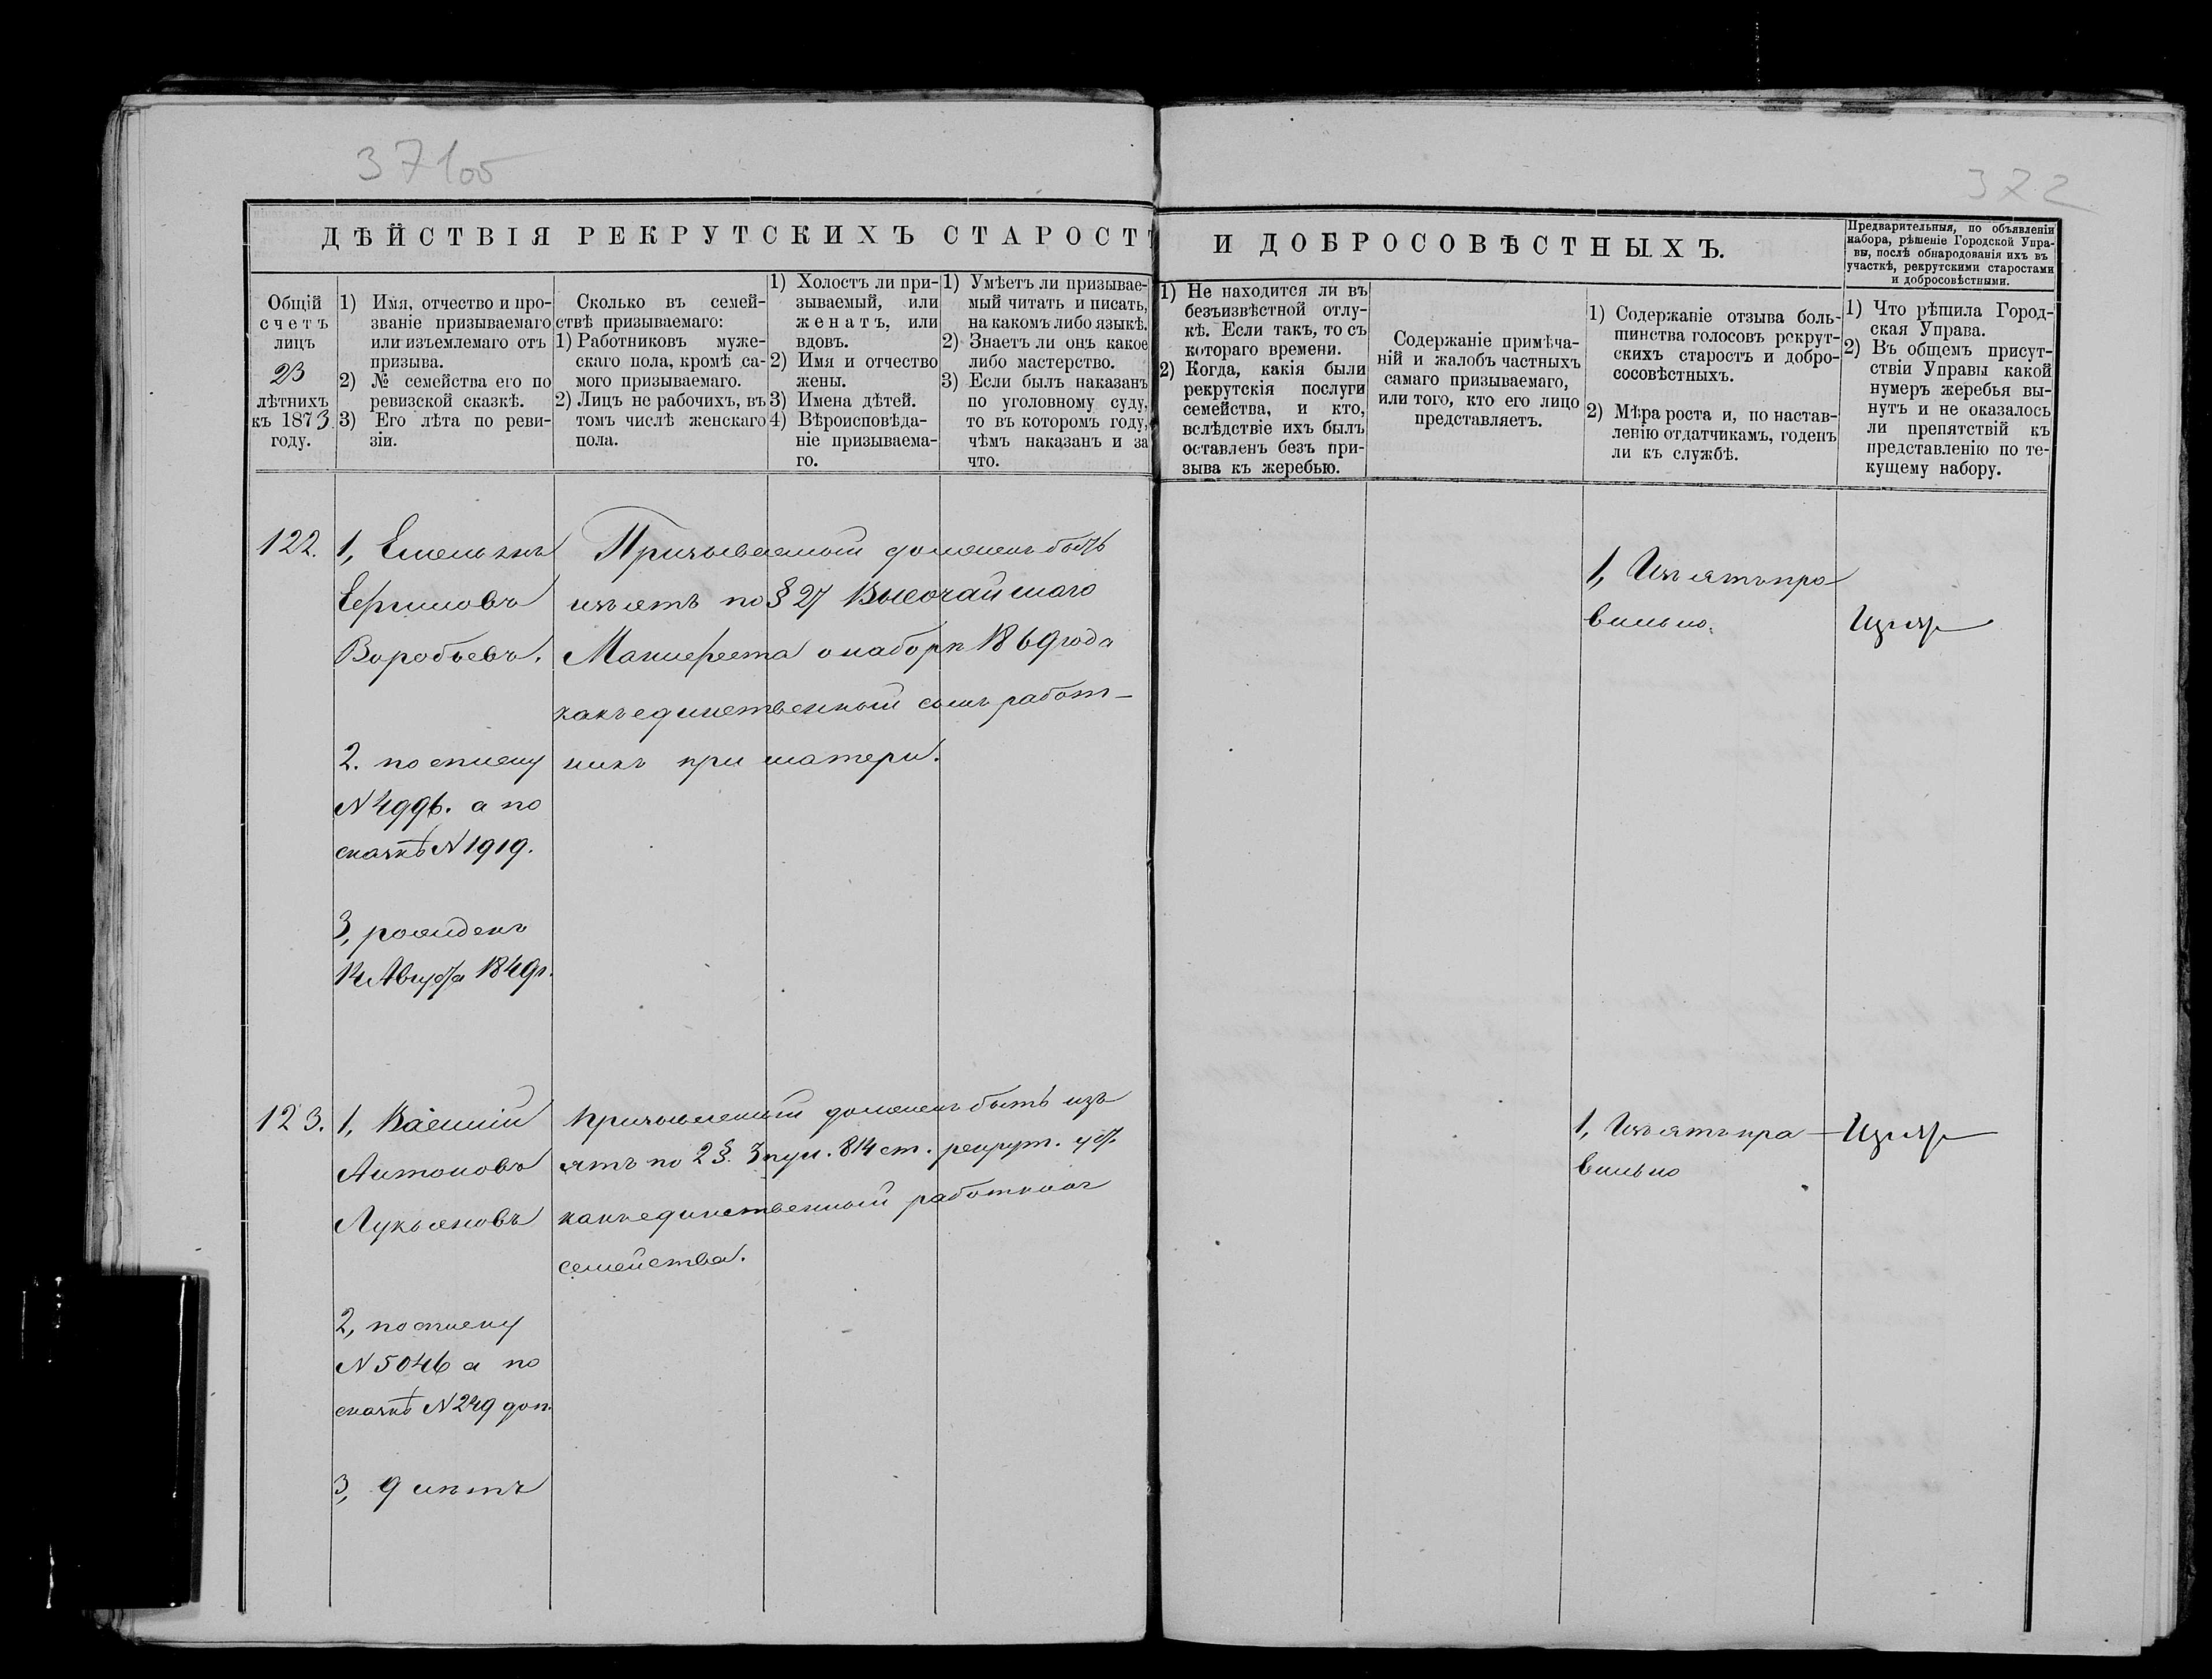 371об
372
ДѢЙСТВІЯ РЕКРУТСКИХЪ СТАРОСТЪ
И ДОБРОСОВѢСТНЫХЪ.
Предварительныя, по объявленіи
набора, рѣшеніе Городской Упра-
вы, послѣ обнародованія ихъ въ
участкѣ, рекрутскими старостами
и добросовѣстными.
Общій
счетъ
лицъ
23
лѣтнихъ
къ 1873
году.
1) Имя, отчество и про-
званіе призываемаго
или изъемлемаго отъ
призыва.
2) № семейства его по
ревизской сказкѣ.
3) Его лѣта по реви-
зіи.
Сколько въ семей-
ствѣ призываемаго:
1) Работниковъ муже-
скаго пола, кромѣ са-
мого призываемаго.
2) Лицъ не рабочихъ, въ
томъ числѣ женскаго
пола.
1) Холостъ ли при-
зываемый, или
женатъ, или
вдовъ.
2) Имя и отчество
жены.
3) Имена дѣтей.
4) Вѣроисповѣда-
ніе призываема-
го.
1) Умѣетъ ли призывае-
мый читать и писать,
на какомъ либо языкѣ.
2) Знаетъ ли онъ какое
либо мастерство.
3) Если былъ наказанъ
по уголовному суду,
то въ которомъ году,
чѣмъ наказанъ и за
что.
1) Не находится ли въ
безъизвѣстной отлу-
кѣ. Если такъ, то съ
котораго времени.
2) Когда, какія были
рекрутскія послуги
семейства, и кто,
вслѣдствіе ихъ былъ
оставленъ безъ при-
зыва къ жеребью.
Содержаніе примѣча-
ній и жалобъ частныхъ
самаго призываемаго,
или того, кто его лицо
представляетъ.
1) Содержаніе отзыва боль-
шинства голосовъ рекрут-
скихъ старостъ и добро-
совѣстныхъ.
2) Мѣра роста и, по настав-
ленію отдатчикамъ, годенъ
ли къ службѣ.
1) Что рѣшила Город-
ская Управа.
2) Въ общемъ присут-
ствіи Управы какой
нумеръ жеребья вы-
нутъ и не оказалось
ли препятствій къ
представленію по те-
кущему набору.
122.
1, Емельянъ
Ефимовъ
Воробьевъ.
2. по списку
N 4996. а по
сказкѣ N 1919.
3, рожденъ
14 Августа 1849 г.
Призываемый долженъ быть
изъятъ по § 27 Высочайшаго
Манифеста о наборѣ 1869 года
какъ единственный сынъ работ-
никъ при матери.
1, Изъятъ пра
вильно.
123.
1, Василій
Антоновъ
Лукьяновъ
2, по списку
N 5046 а по
сказкѣ N 249 доп.
3, 9 лѣтъ
Призываемый долженъ быть изъ
ятъ по 2 §. 3 пун. 814 ст. рекрут. уст.
какъ единственный работникъ
семейства.
1, Изъятъ пра
вильно